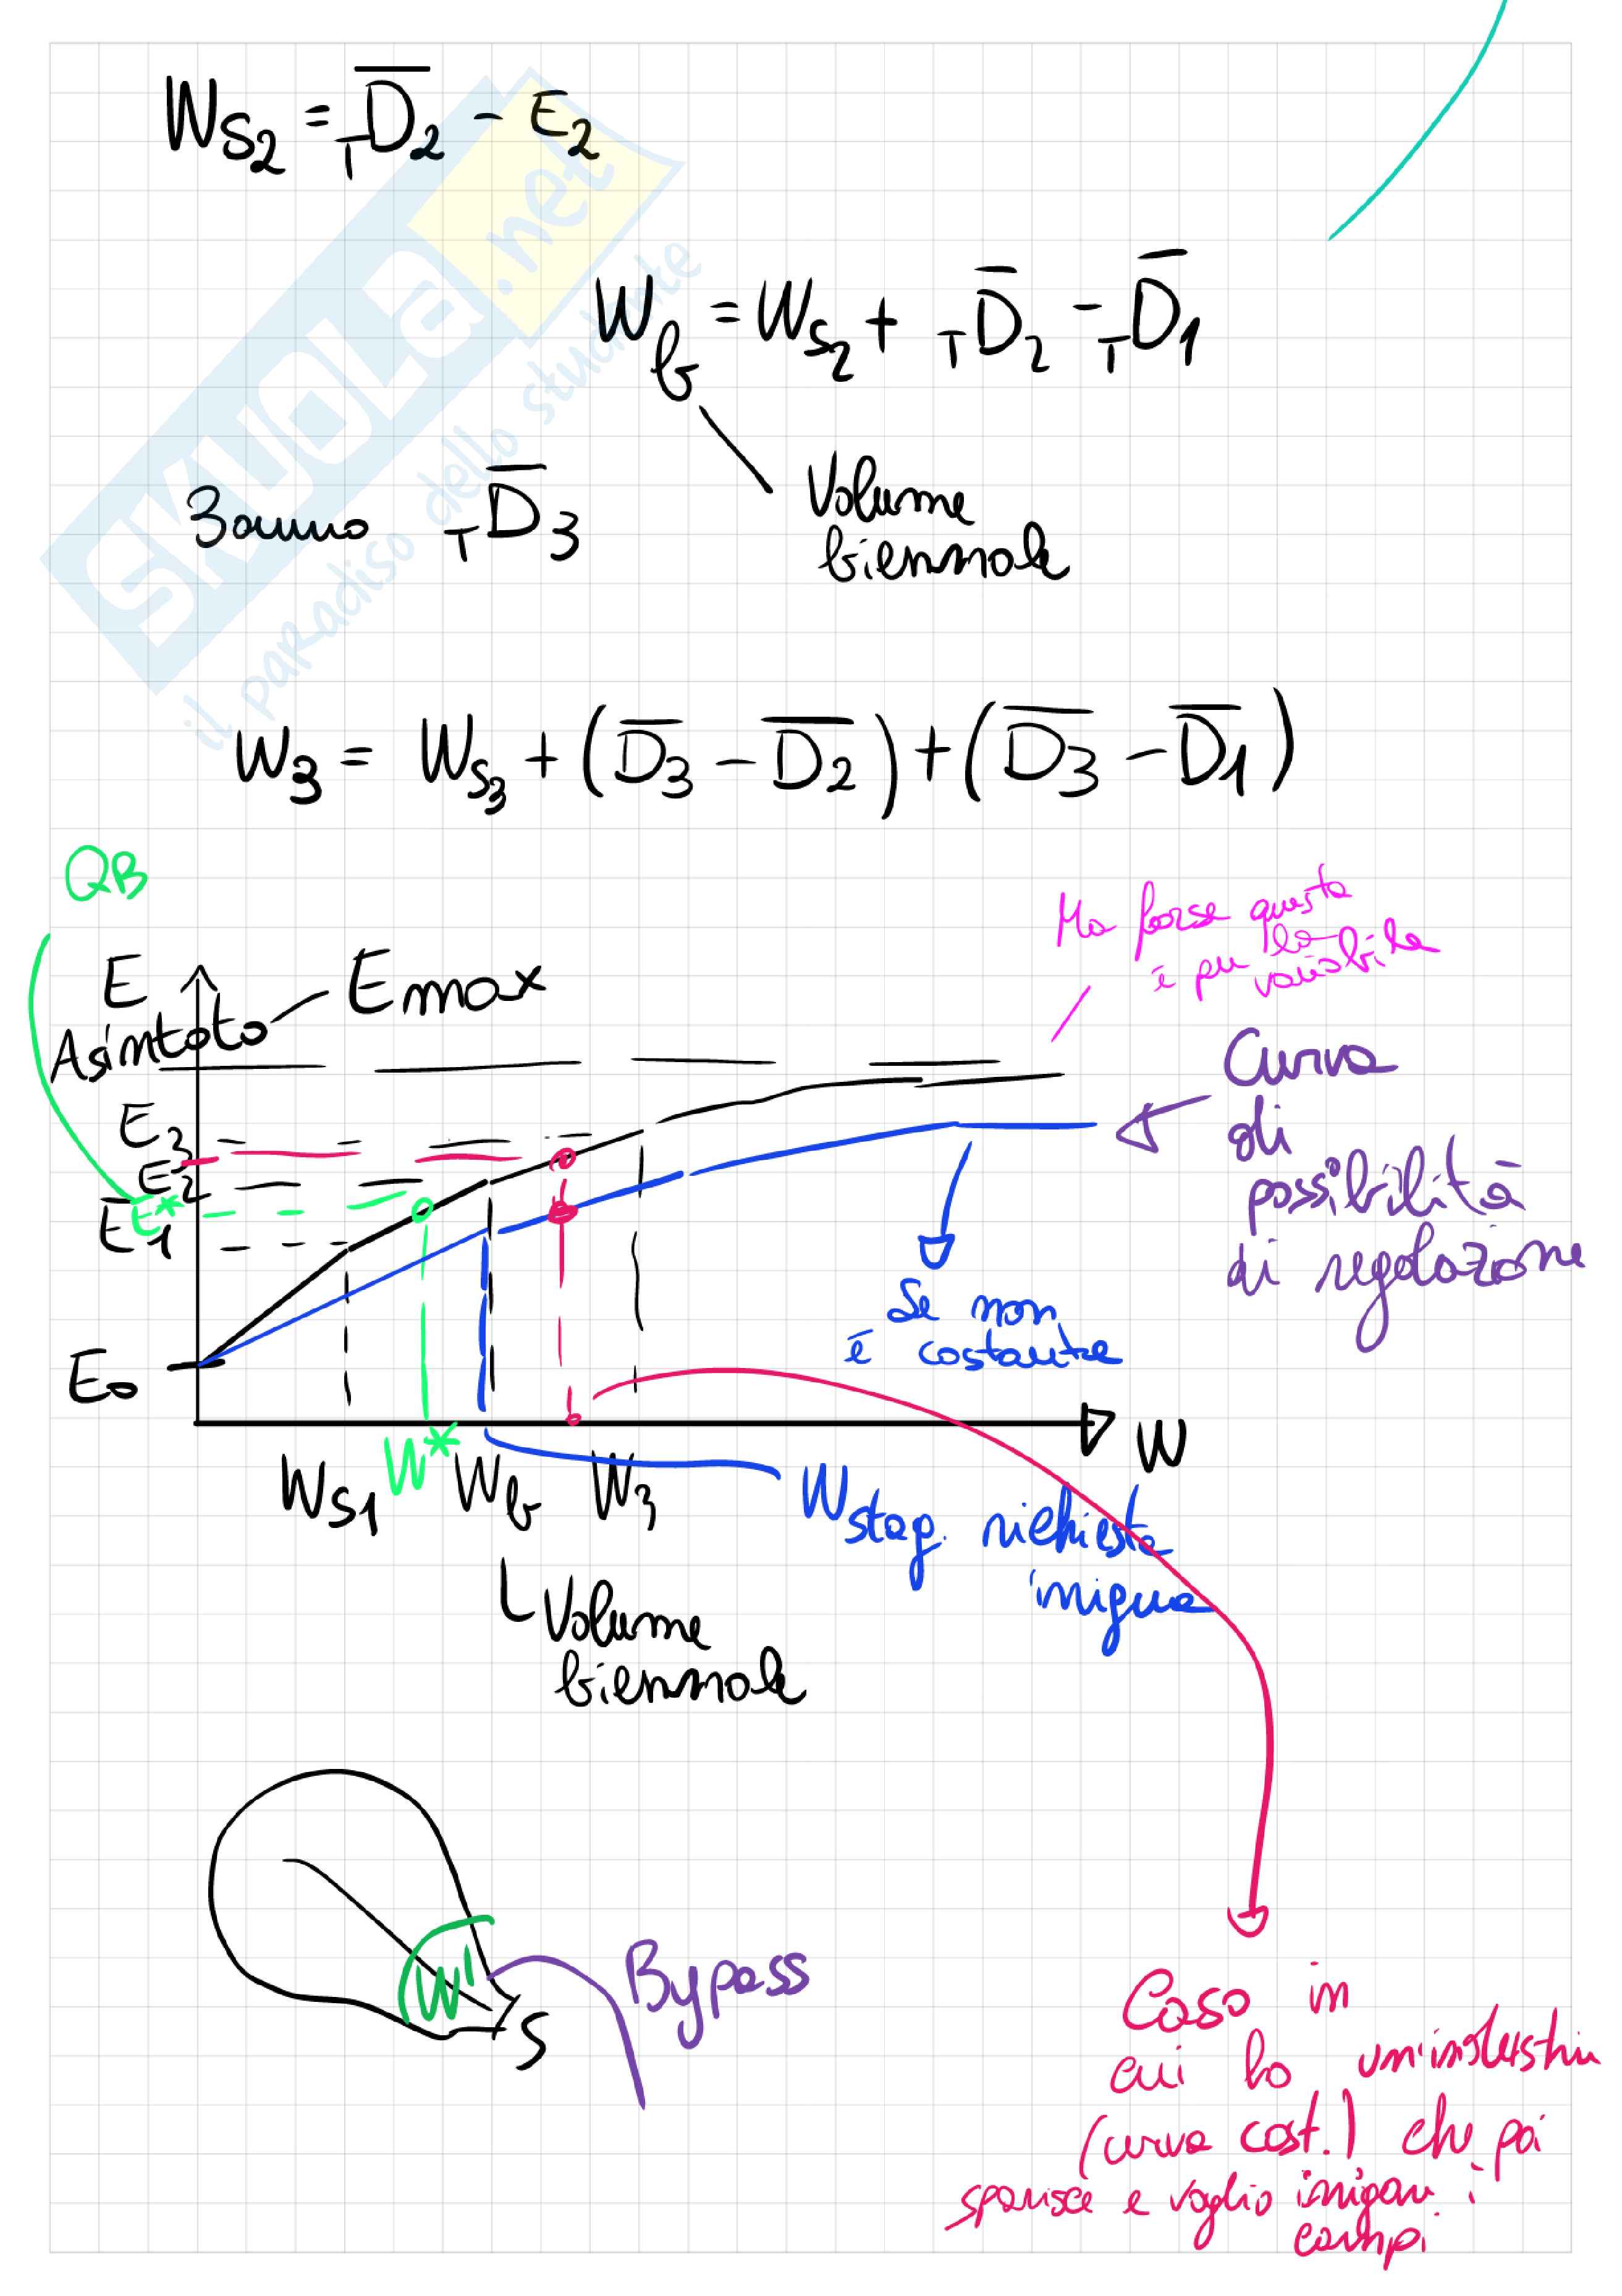 W_S2 = _T D̅_2 - E_2
W_b = W_S2 + _T D̅_2 - _T D̅_1
Volume
biennale
3 anno _T D̅_3
W_3 = W_S3 + (D̅_3 - D̅_2) + (D̅_3 - D̅_1)
QB
Ma forse questa
è per la
variabile
E
Asintoto
Emax
Curva
di
possibilità
di regolazione
E_3
E_2
E*
E_1
E_0
Se non
è costante
W
W_S1
W*
W_b
W_3
W stag. richiesta
irrigua
Volume
biennale
W
S
Bypass
Caso in
cui ho un'industria
(curva cost.) che poi
sparisce e voglio irrigare i
campi
SKUOLA.net
il paradiso dello studente